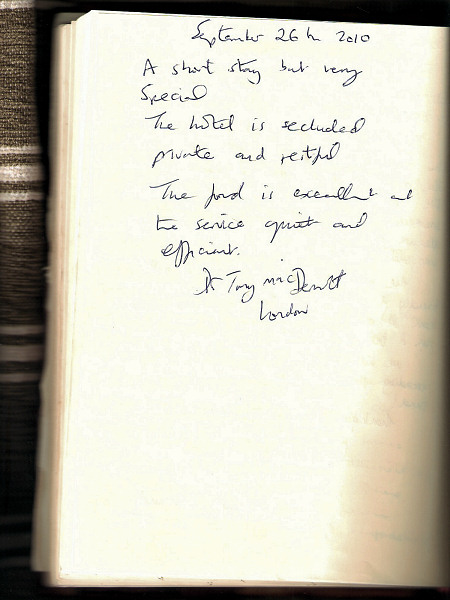 September 26th 2010
A short stay but very
Special
The hotel is secluded
private and restful
The food is excellent and
the service quiet and
efficient.
Dr Tony MacDermott
London